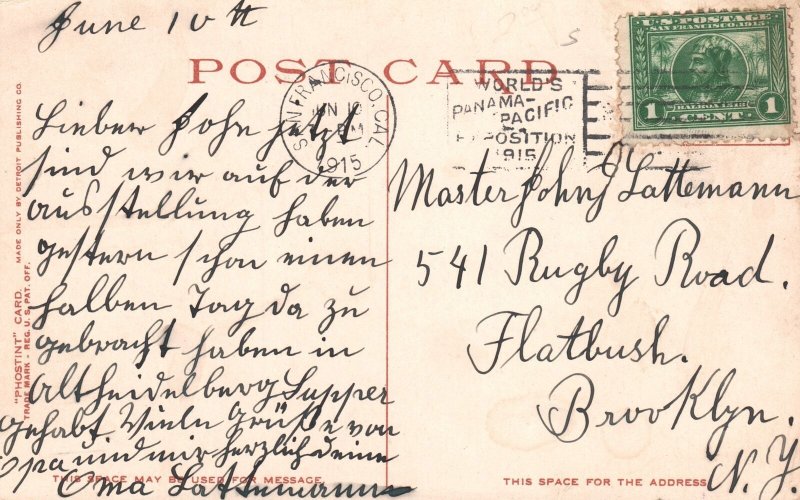 June 10th
POST CARD
SAN FRANCISCO, CAL.
JUN 10
PM
1915
WORLD'S
PANAMA-
PACIFIC
EXPOSITION
1915
U.S. POSTAGE
SAN FRANCISCO, 1915
BALBOA 1513
1 CENT 1
Lieber John jetzt
sind wir auf der
Ausstellung haben
gestern schon einen
halben Tag da zu
gebracht haben in
Altheidelberg Supper
gehabt Viele Grüße von
Opa und mir herzlich deine
Oma Lattemann
Master John J Lattemann
541 Rugby Road.
Flatbush.
Brooklyn.
N.Y.
"PHOSTINT" CARD. MADE ONLY BY DETROIT PUBLISHING CO.
TRADE MARK - REG. U.S. PAT. OFF.
THIS SPACE MAY BE USED FOR MESSAGE
THIS SPACE FOR THE ADDRESS